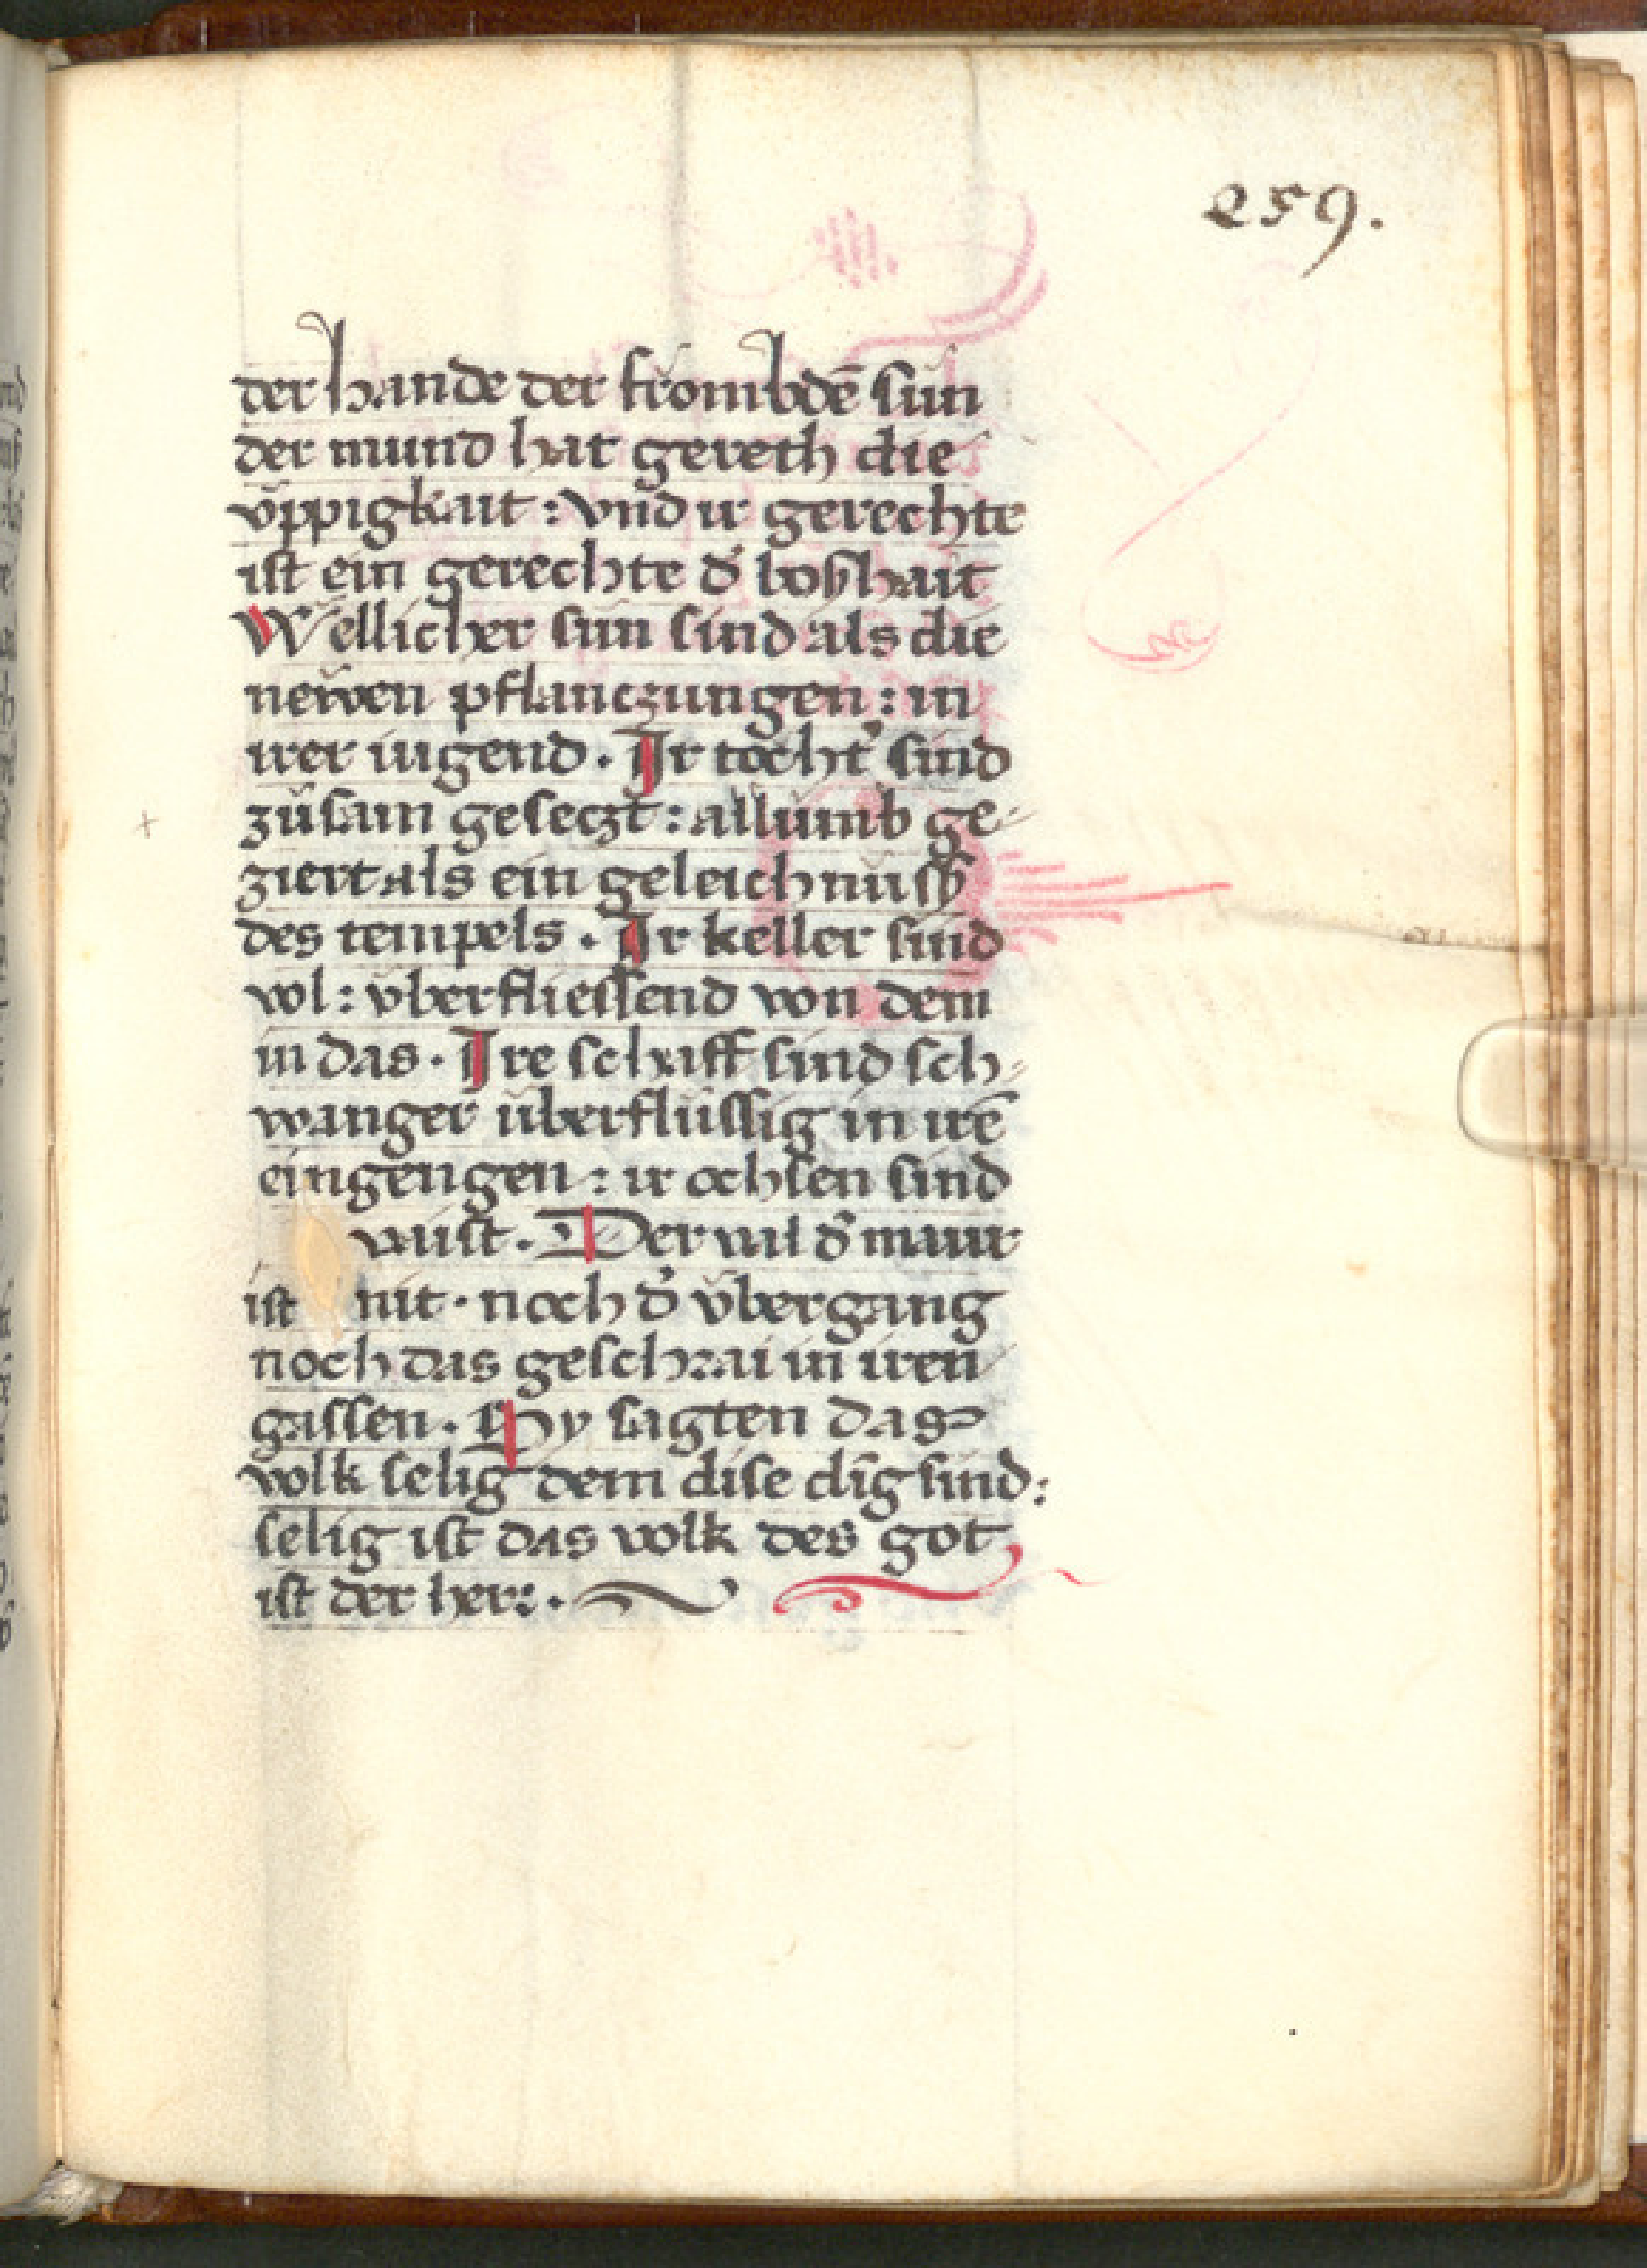 259.
der hande der frömbdē sün
der mund hat gereth die
v̈ppigkait : vnd ir gerechte
ist ein gerechte d' boßhait
Wellicher sün sind als die
newen pflanczungen : in
irer iugend . Ir töcht' sind
zůsam geseczt : allumb ge-
ziert als ein geleichnusß
des tempels . Ir keller sind
vol : v̈berfliessend von dem
in das . Ire schaff sind sch-
wanger überflüssig in irē
eingengen : ir ochsen sind
vaist . Der val d' maur
ist nit . noch d' v̈bergang
noch das geschrai in iren
gassen . Sy sagten das
volk selig dem dise ding sind :
selig ist das volk des got
ist der herr .